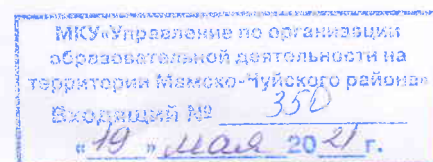 МКУ«Управление по организации
образовательной деятельности на
территории Мамско-Чуйского района»
Входящий № 350
«19» мая 2021 г.